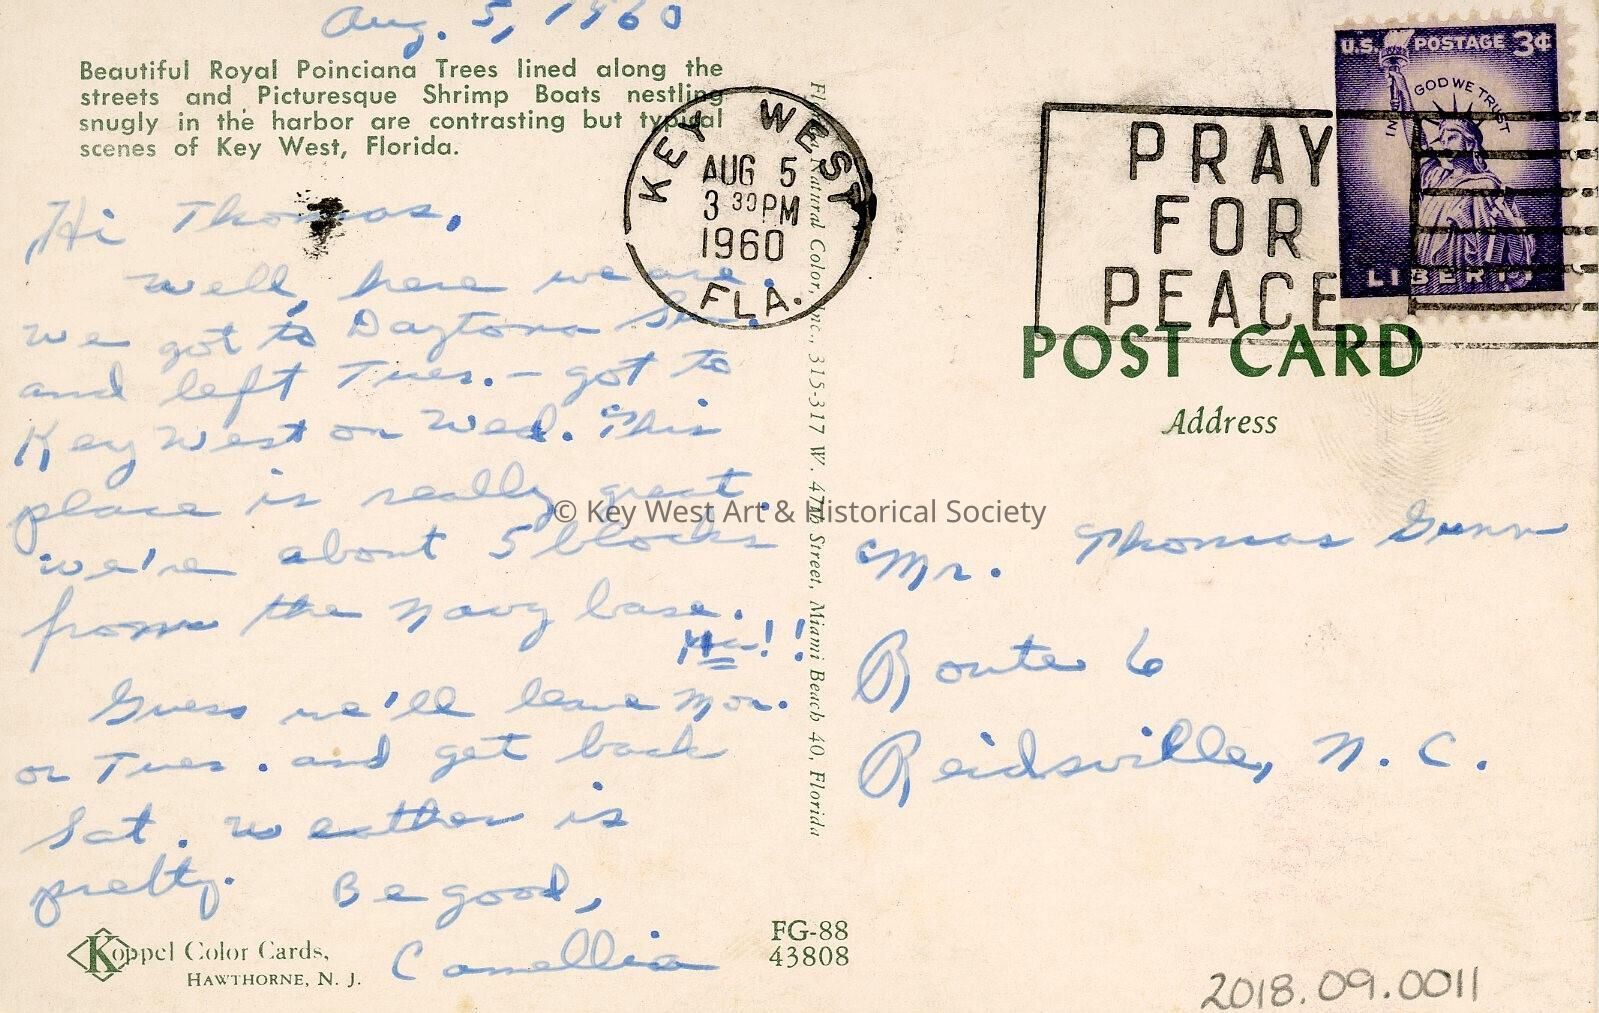 Aug. 5, 1960
Beautiful Royal Poinciana Trees lined along the
streets and Picturesque Shrimp Boats nestling
snugly in the harbor are contrasting but typical
scenes of Key West, Florida.
Hi Thomas,
Well, here we are.
We got to Daytona Sat.
and left Tues. - got to
Key West on Wed. This
place is really great.
We're about 5 blocks
from the Navy base.
Ha!!
Guess we'll leave Mon.
or Tues. and get back
Sat. Weather is
pretty. Be good,
Camellia
Koppel Color Cards,
HAWTHORNE, N. J.
FG-88
43808
Florida Natural Color, Inc., 315-317 W. 47th Street, Miami Beach 40, Florida
KEY WEST
AUG 5
3 30 PM
1960
FLA.
PRAY
FOR
PEACE
U.S. POSTAGE 3¢
IN GOD WE TRUST
LIBERTY
POST CARD
Address
Mr. Thomas Gunn
Route 6
Reidsville, N. C.
© Key West Art & Historical Society
2018.09.0011